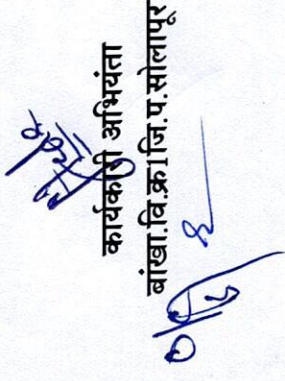 कार्यकारी अभियंता
बांखा.वि.क्र1जि.प.सोलापूर